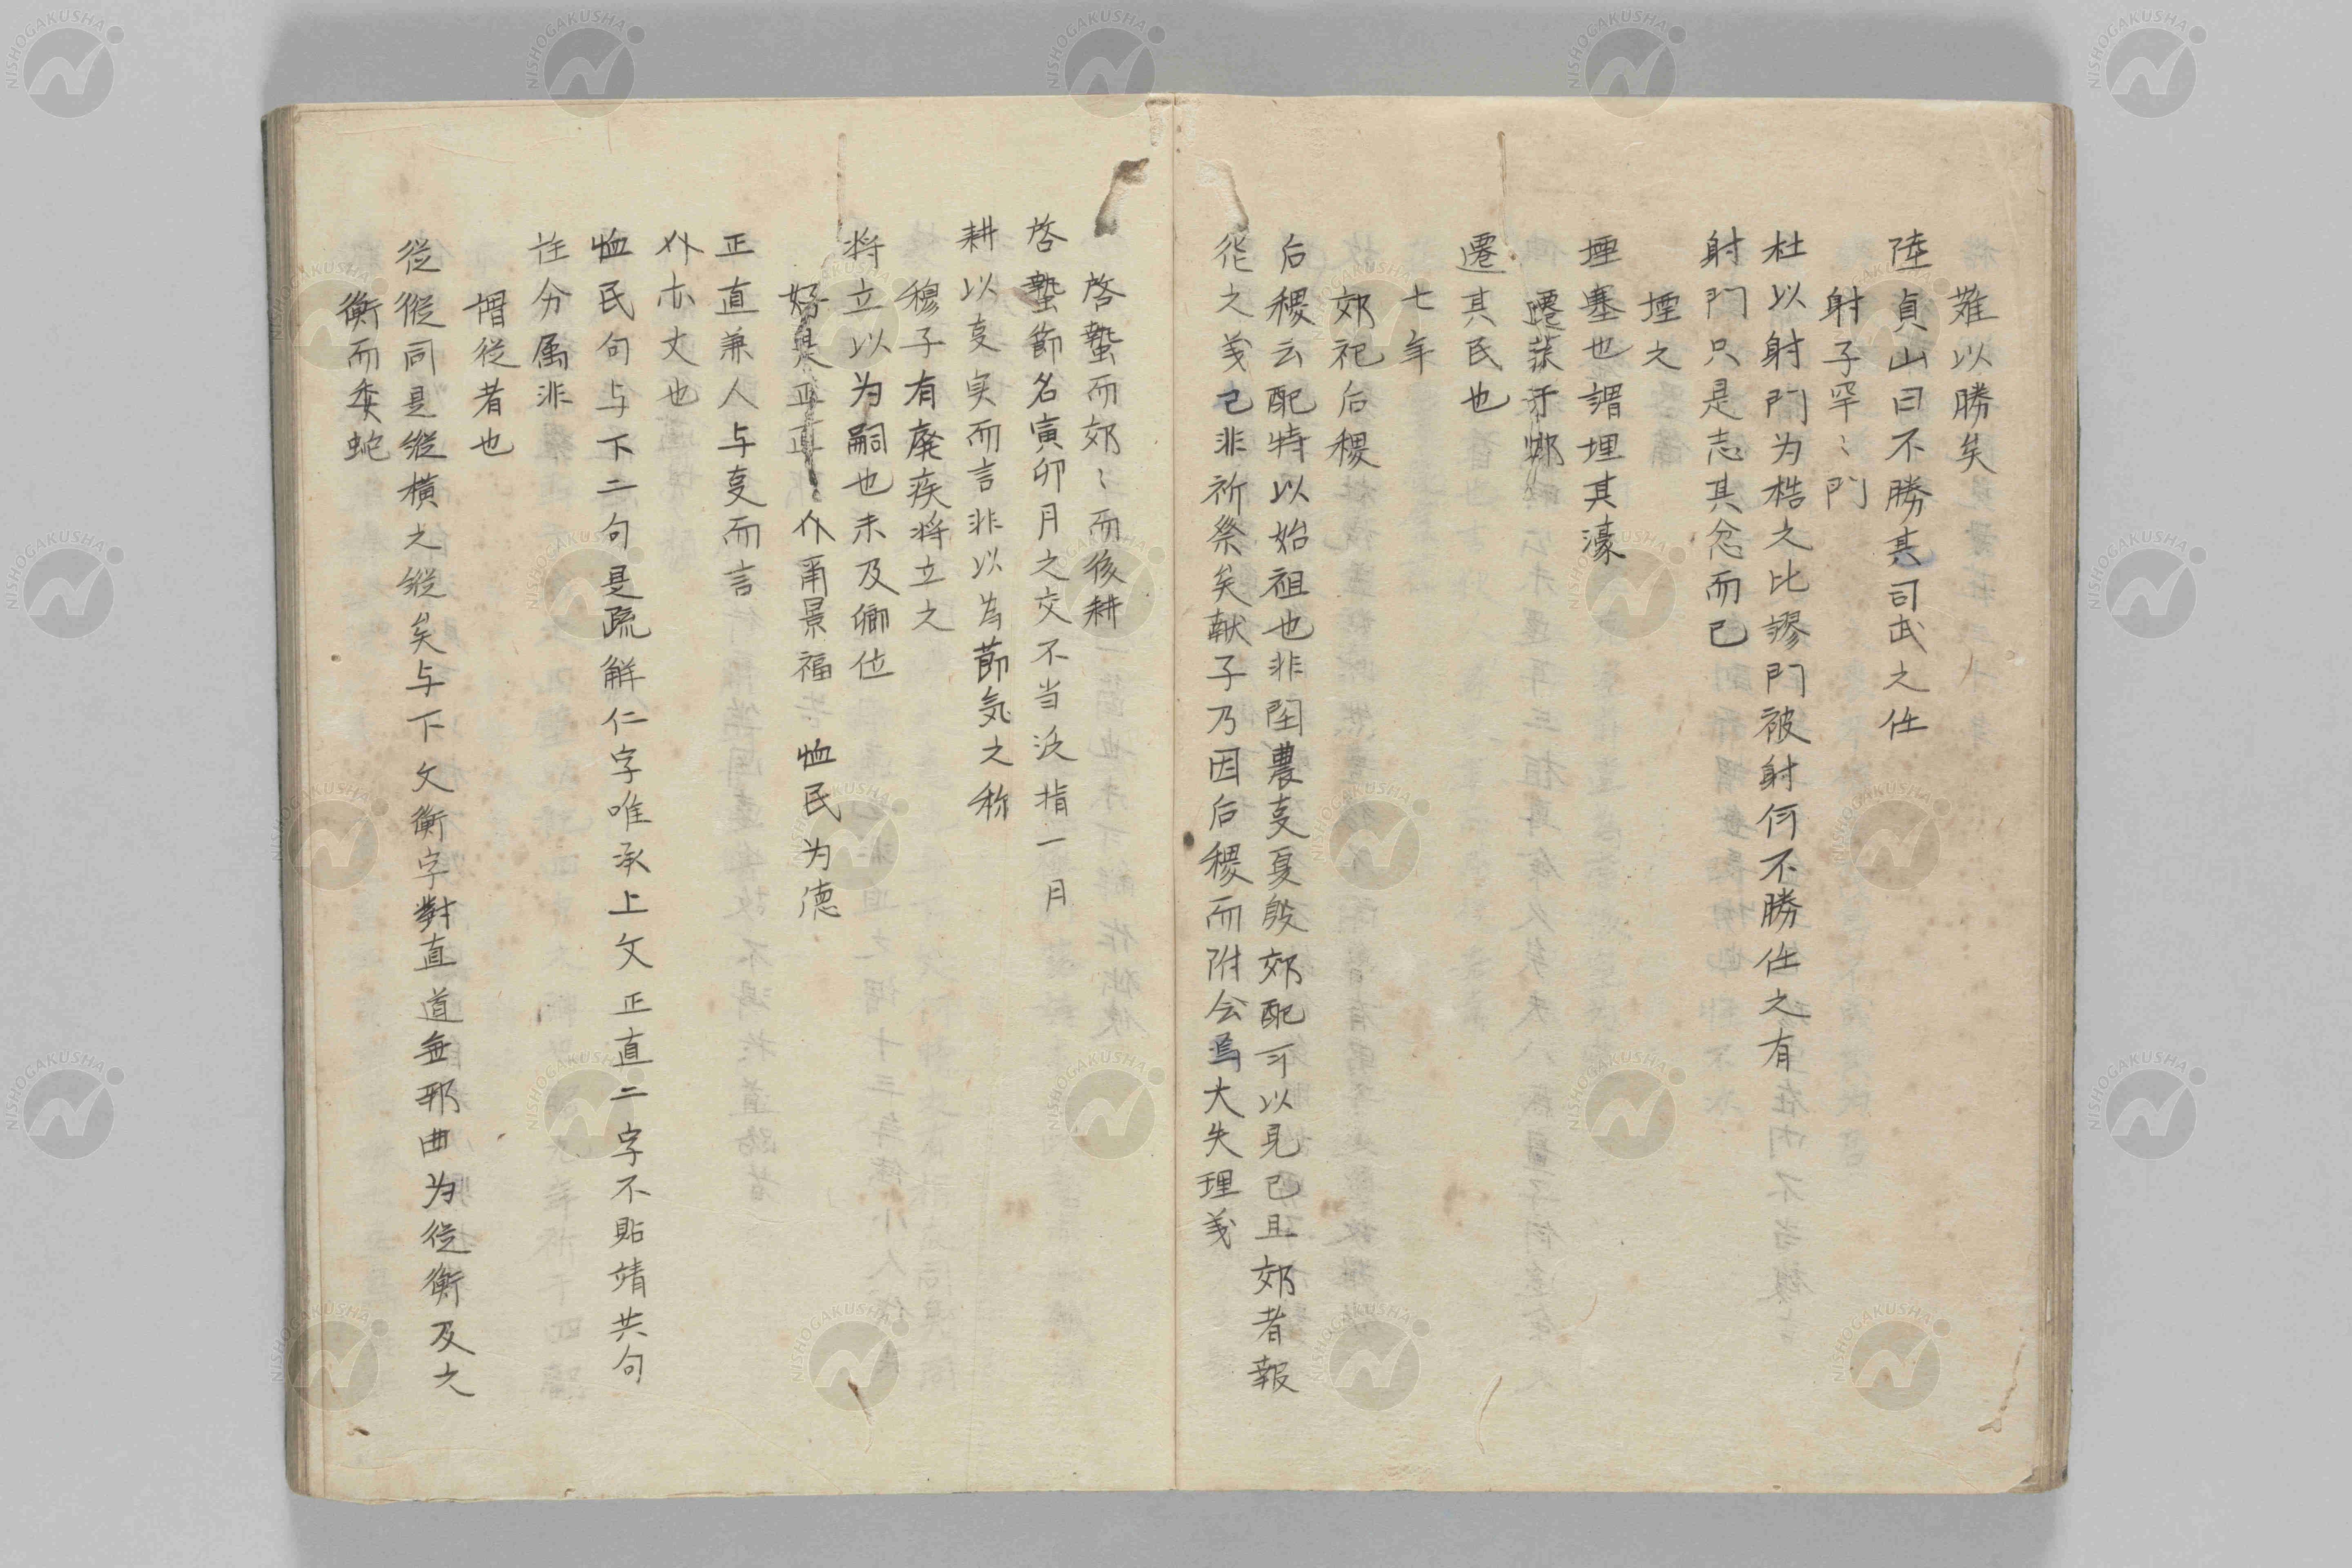 難以勝矣
陸貞山曰不勝其司武之任
射子罕〻門
杜以射門为梏之比謬門被射何不勝任之有
射門只是志其忿而已
堙之
堙塞也謂埋其濠
遷萊于郳
遷其民也
七年
郊祀后稷
后稷云配特以始祖也非関農叓夏殷郊配可以見已且郊者報
祀之义已非祈祭矣献子乃因后稷而附会焉大失理义
啓蟄而郊〻而後耕
啓蟄節名寅卯月之交不当泛指一月
耕以叓実而言非以為節気之称
穆子有廃疾将立之
将立以为嗣也未及卿位
好是正直〻介甫景福 恤民为德
正直兼人与叓而言
介亦丈也
恤民句与下二句是疏解仁字唯承上文正直二字不貼靖共句
往分属非
謂従者也
従従同是縦横之縦矣与下文衡字對直道無邪曲为従衡及之
衡而委蛇
NISHOGAKUSHA